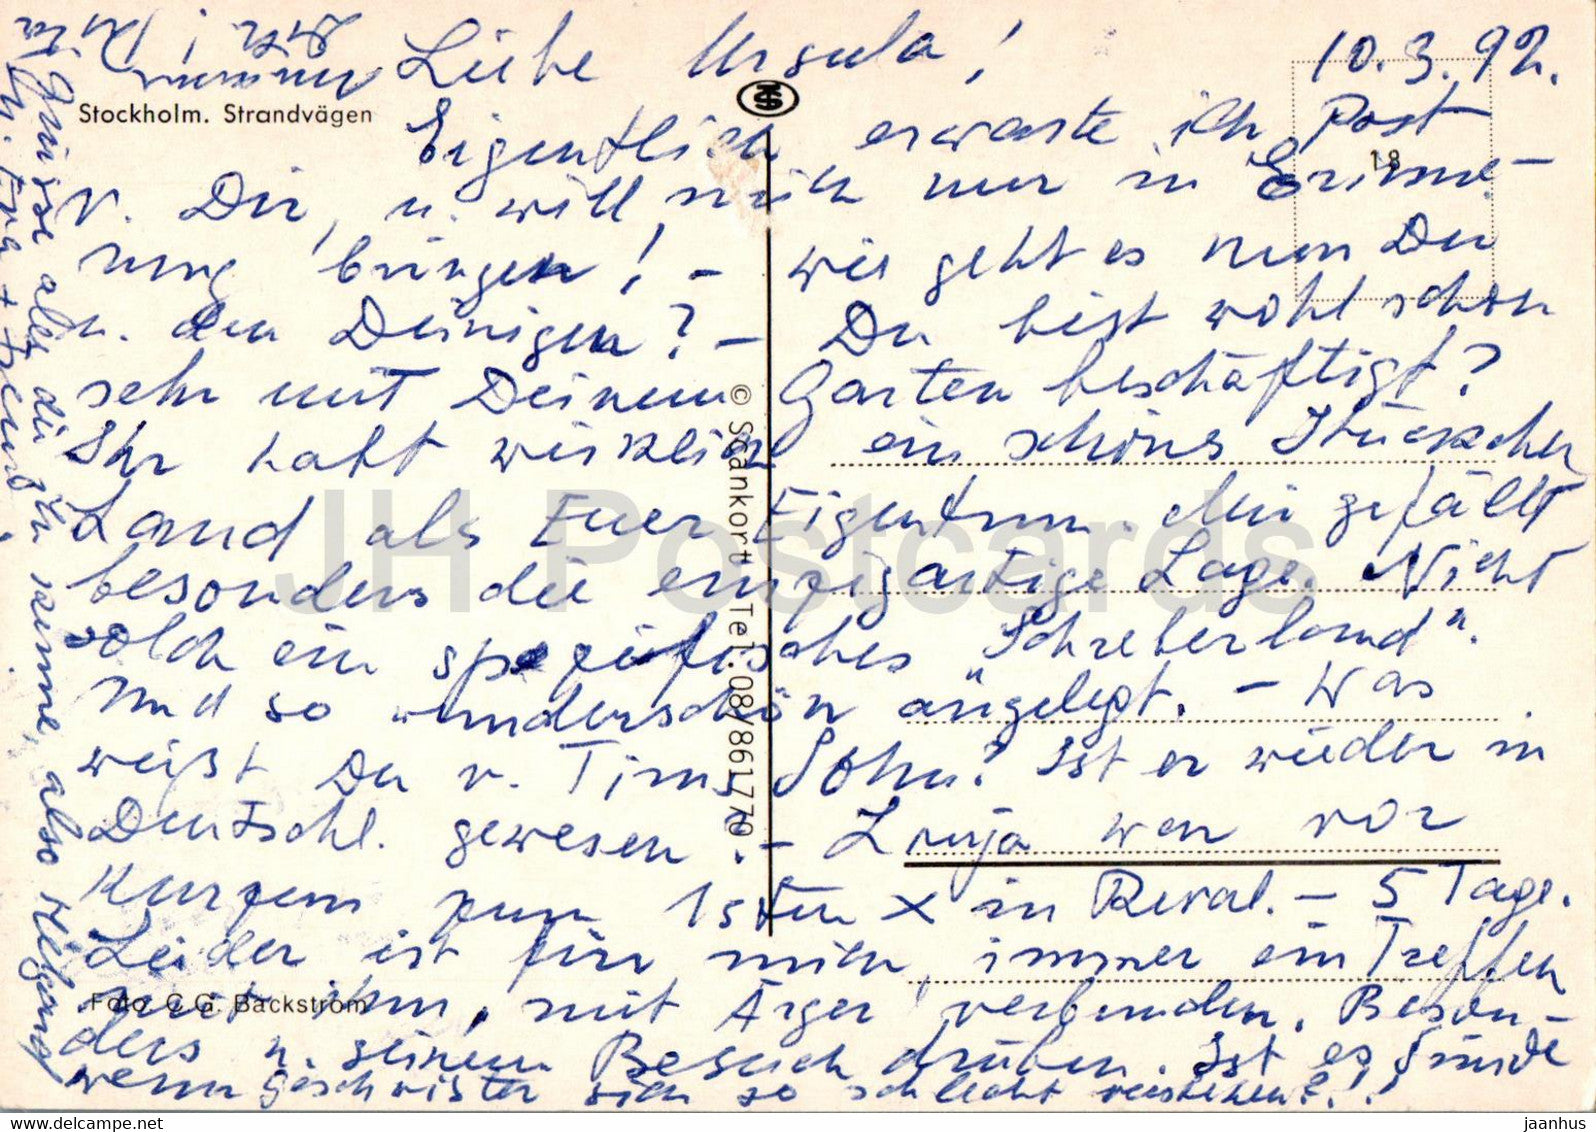 Liebe Ursula! 10.3.92.
Stockholm. Strandvägen
Eigentlich erwarte ich Post
18
v. Dir, u. will mich nur in Erinne-
rung bringen! – wie geht es nun Dir
u. den Deinigen? – Du bist wohl schon
sehr mit Deinem Garten beschäftigt?
Ihr habt wirklich ein schönes Stückchen
Land als Euer Eigentum. Mir gefällt
besonders die einzigartige Lage. Nicht
solch ein spezifisches "Schreberland".
Und so wunderschön angelegt. – Was
weißt Du v. Tims Sohn? Ist er wieder in
Deutschl. gewesen? – Linja war vor
Kurzem zum 1sten x in Reval. – 5 Tage.
Leider ist für mich immer ein Treffen
mit ihm, mit Ärger verbunden. Beson-
ders n. seinem Besuch drüben. Ist es Sünde
wenn Geschwister sich so schlecht verstehen?!!
Foto C.G. Bäckström
© Scankort Tel. 08/861770
Grüsse alle die Du kennst, also Helgard
u. Eva +
JH Postcards
jaanhus